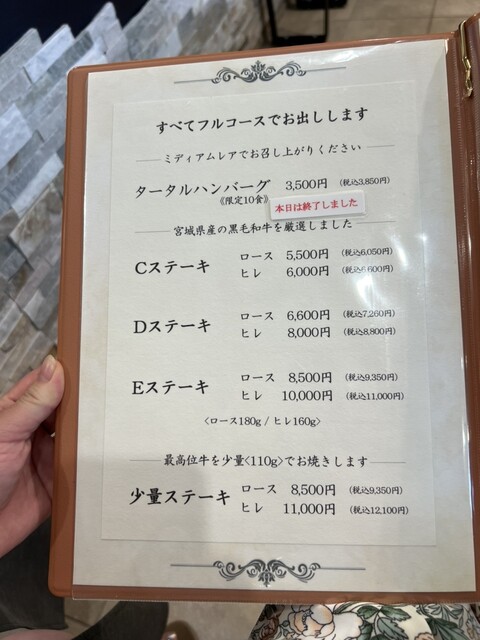 すべてフルコースでお出しします
ミディアムレアでお召し上がりください
タータルハンバーグ 3,500円 (税込3,850円)
《限定10食》 本日は終了しました
宮城県産の黒毛和牛を厳選しました
Cステーキ ロース 5,500円 (税込6,050円)
ヒレ 6,000円 (税込6,600円)
Dステーキ ロース 6,600円 (税込7,260円)
ヒレ 8,000円 (税込8,800円)
Eステーキ ロース 8,500円 (税込9,350円)
ヒレ 10,000円 (税込11,000円)
〈ロース180g / ヒレ160g〉
最高位牛を少量〈110g〉でお焼きします
少量ステーキ ロース 8,500円 (税込9,350円)
ヒレ 11,000円 (税込12,100円)